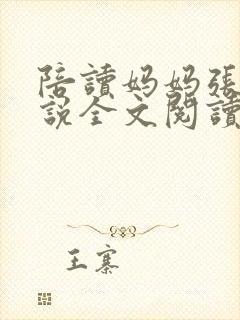 陪讀妈妈張
說全文閱讀
王寨